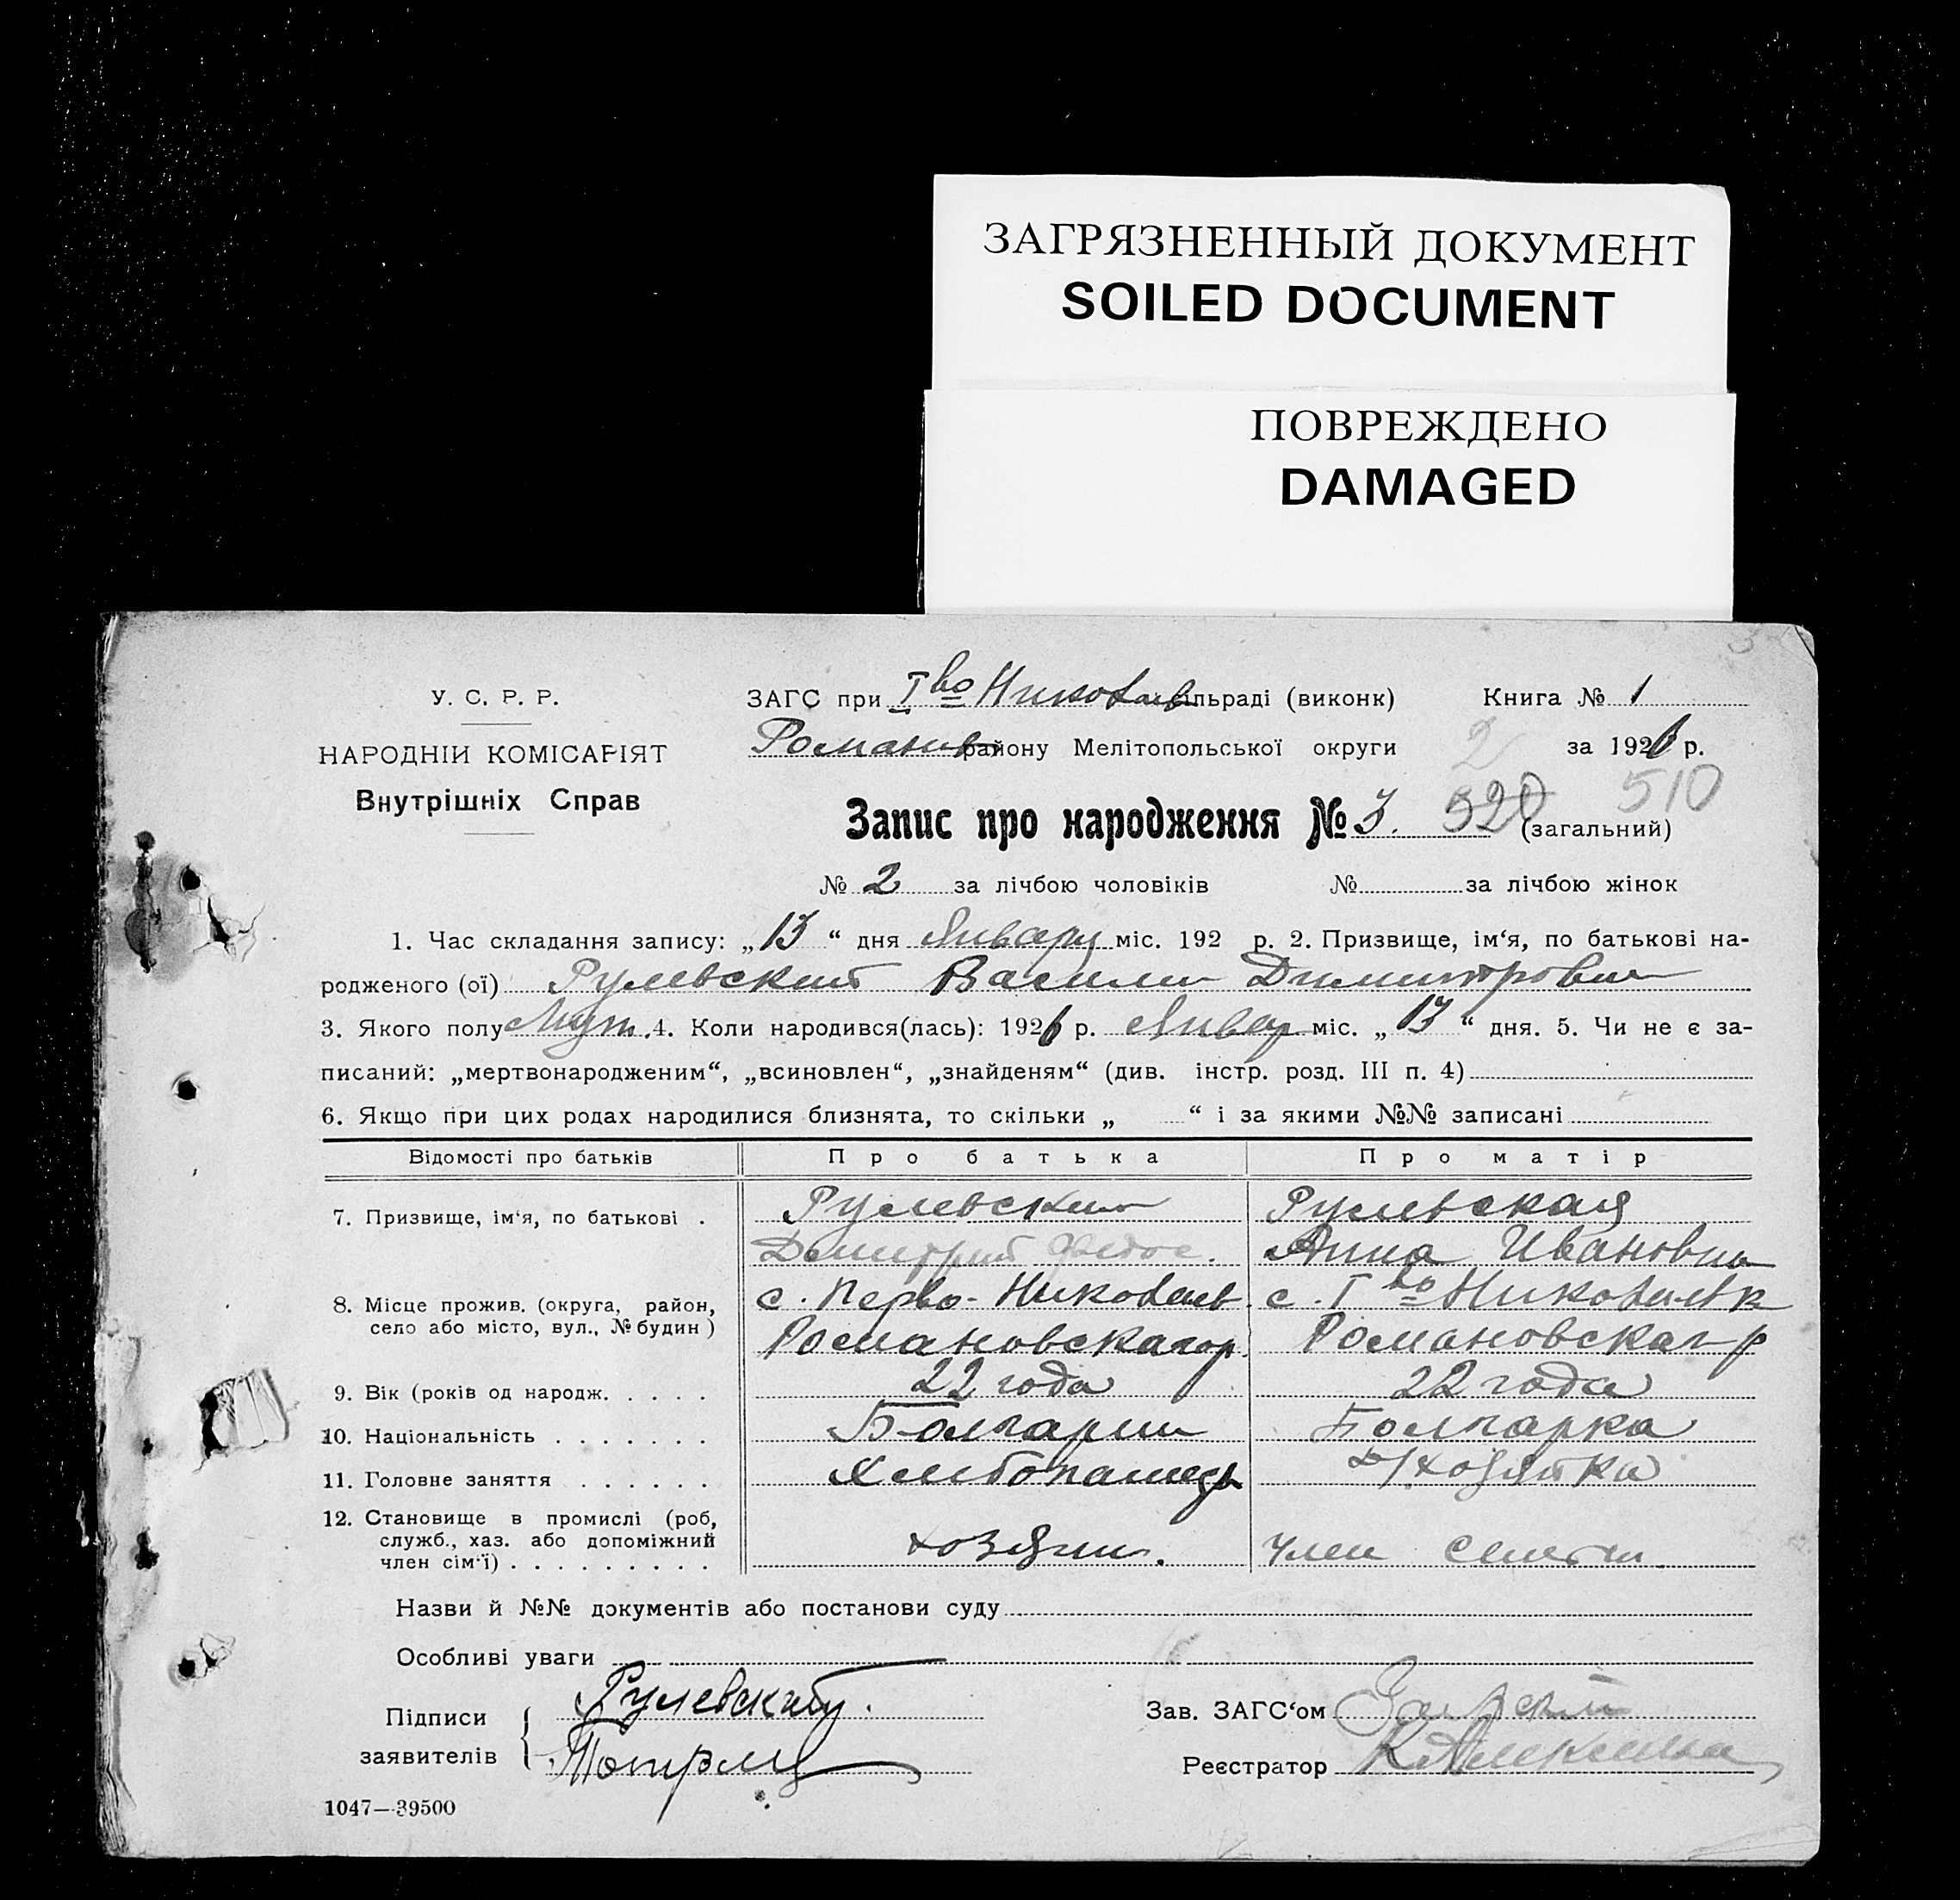 ЗАГРЯЗНЕННЫЙ ДОКУМЕНТ
SOILED DOCUMENT
ПОВРЕЖДЕНО
DAMAGED
У. С. Р. Р.
НАРОДНІЙ КОМІСАРІЯТ
Внутрішніх Справ
ЗАГС при Iво Николаев сільраді (виконк) Книга № 1
Романов району Мелітопольської округи 2 за 1926 р.
Запис про народження № 3. 520 (загальний) 510
№ 2 за лічбою чоловіків № за лічбою жінок
1. Час складання запису: „13“ дня Январу міс. 192 р. 2. Призвище, ім‘я, по батькові на-
родженого (ої) Рулевский Василий Димитрович
3. Якого полу Муж. 4. Коли народився(лась): 1926 р. Январ міс. „13“ дня. 5. Чи не є за-
писаний: „мертвонародженим“, „всиновлен“, „знайденям“ (див. інстр. розд. III п. 4)
6. Якщо при цих родах народилися близнята, то скільки „ “ і за якими №№ записані
Відомості про батьків Про батька Про матір
7. Призвище, ім‘я, по батькові . Рулевский Рулевская
Димитрий Федос. Анна Ивановна
8. Місце прожив. (округа, район, село або місто, вул., № будин) с. Перво-Николаев. с. Iво Николаевк
Романовского р. Романовског р
9. Вік (років од народж. . . . . 22 года 22 года
10. Національність . . . . . . . Болгарин Болгарка
11. Головне заняття . . . . . . Хлебопашець Д/хозяйка
12. Становище в промислі (роб, служб., хаз. або допоміжний член сім‘ї) . . . . . . . . . хозяин. член семьи
Назви й №№ документів або постанови суду
Особливі уваги
Підписи заявителів { Рулевский.
Зав. ЗАГС‘ом
Реєстратор
1047—39500